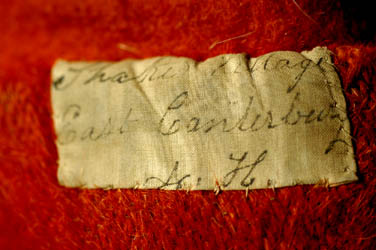 Shaker Village
East Canterbury
N. H.